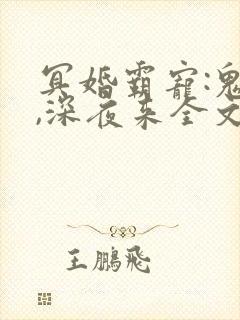 冥婚霸宠:鬼
,深夜来全文
王鹏飞